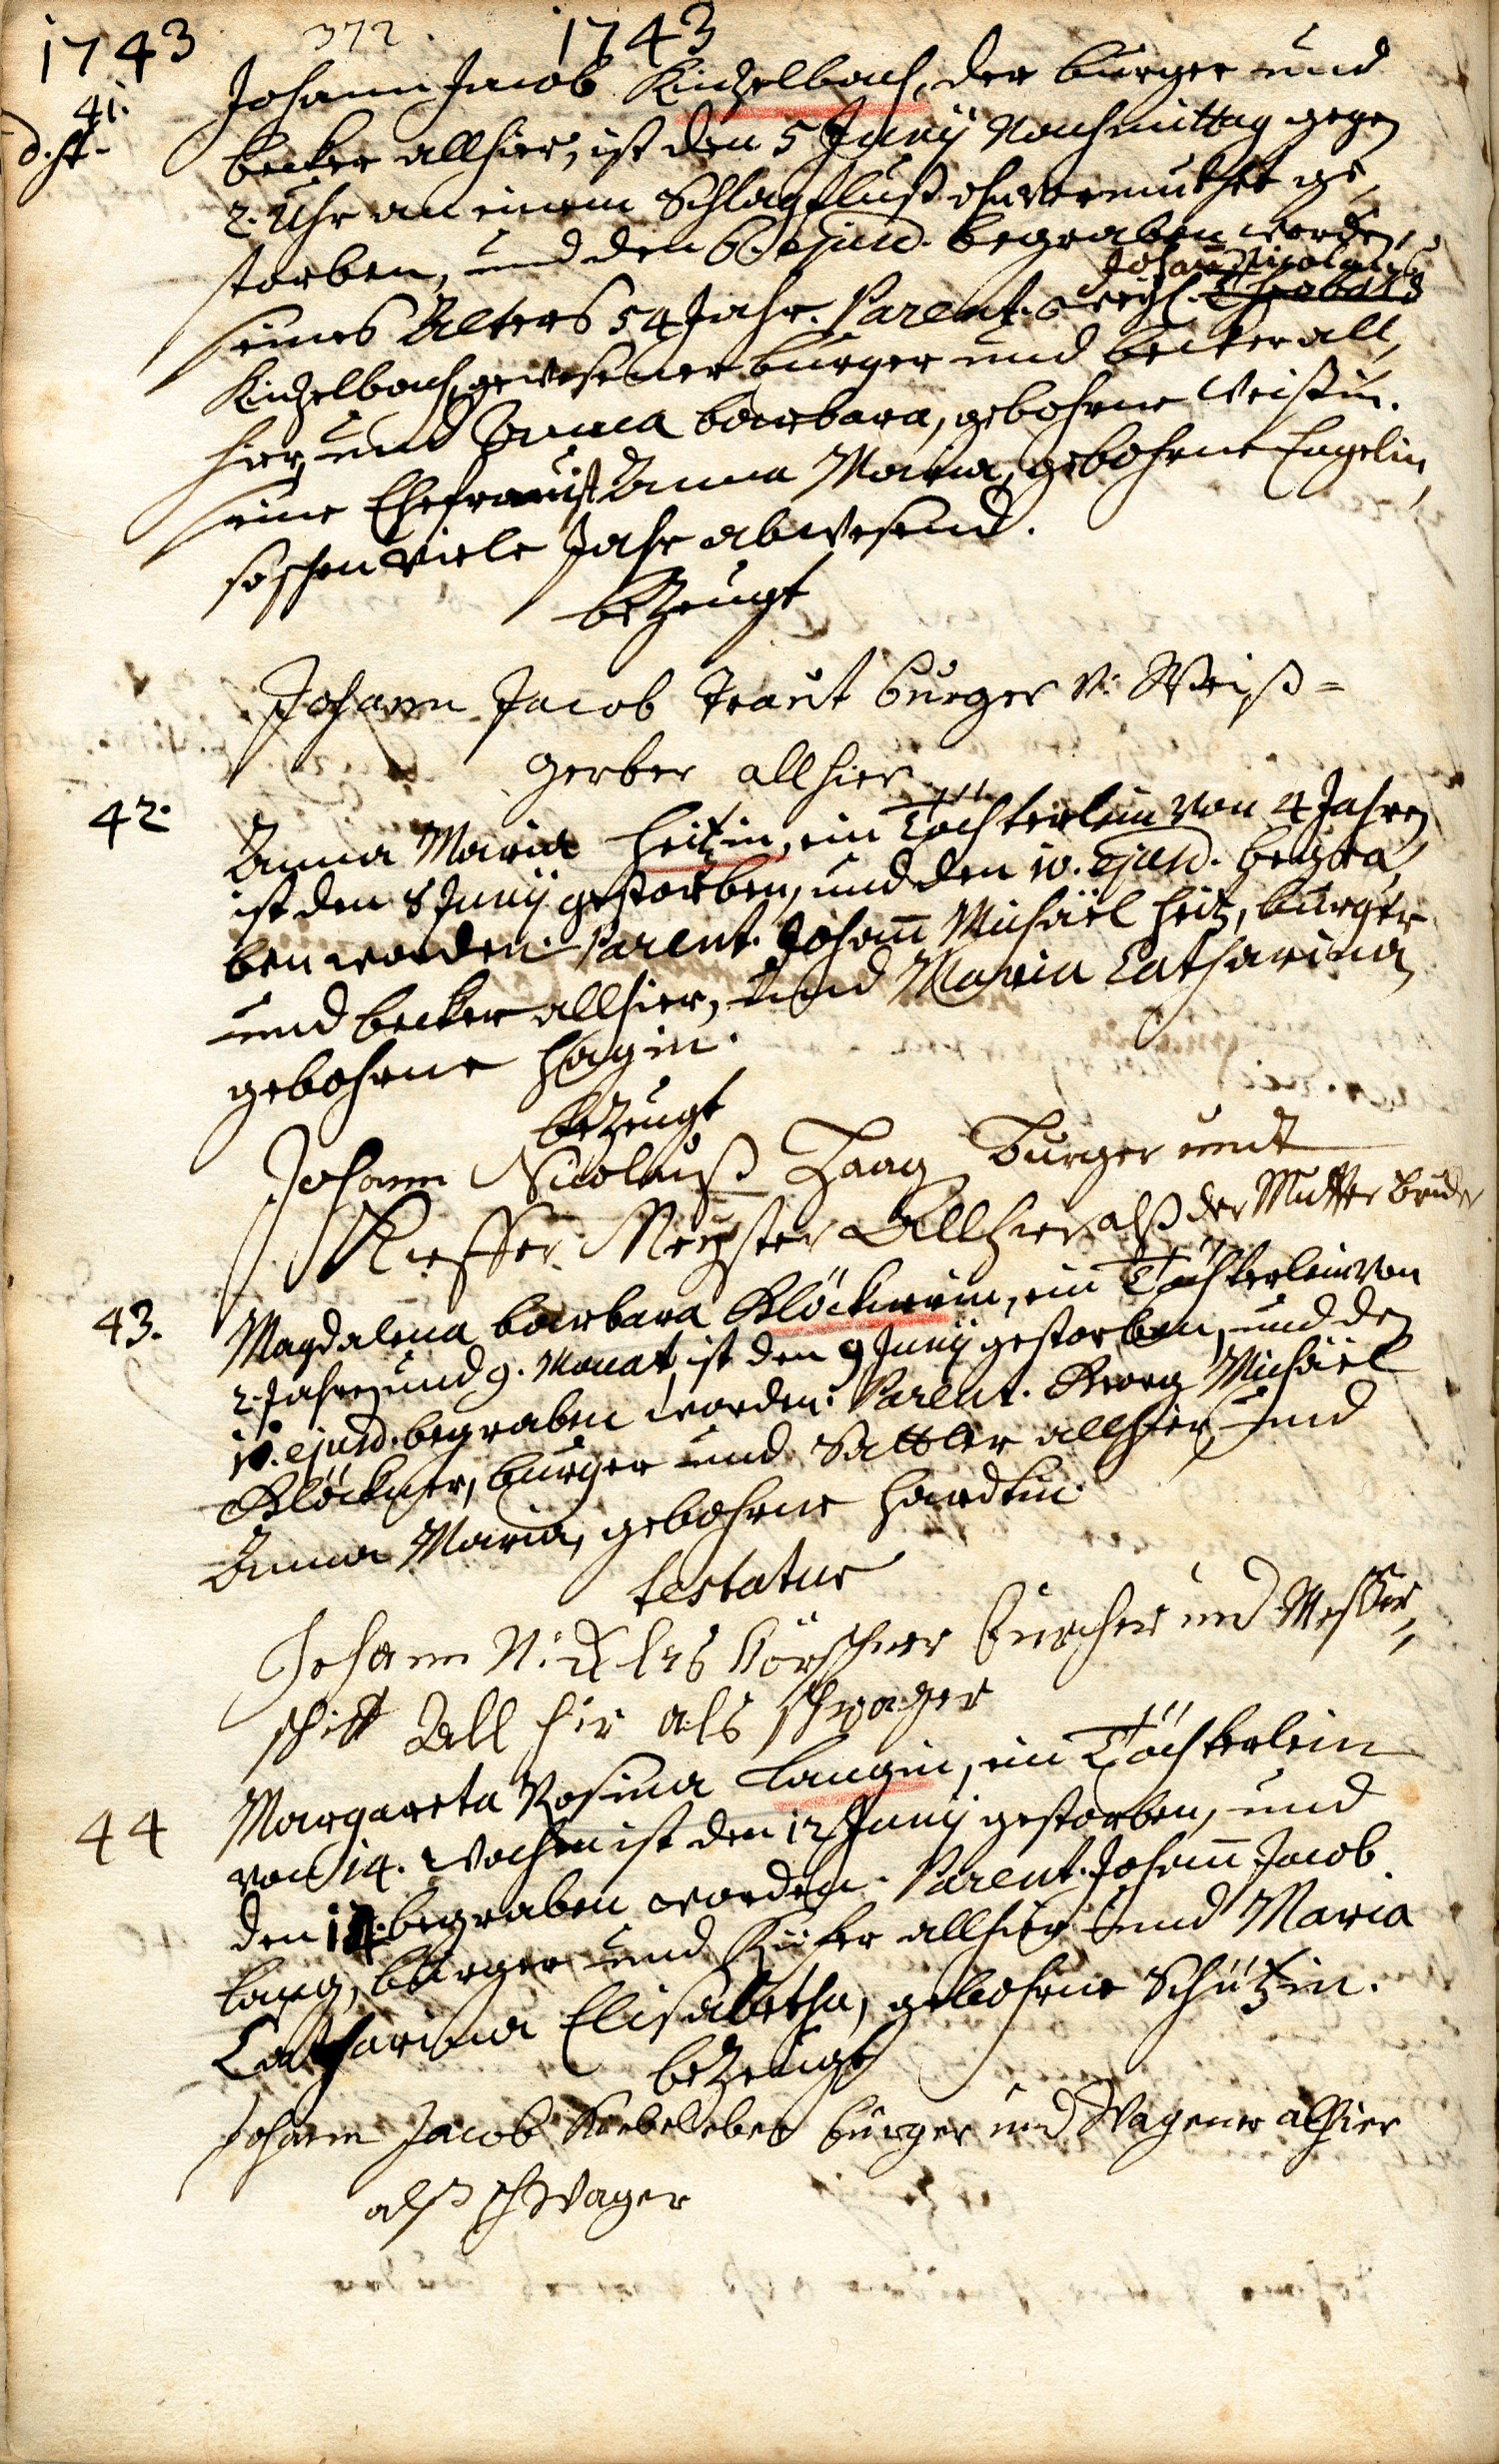 1743 372. 1743
41. Johann Jacob Kinzelbach, der burger und
d. st.
becker allhier, ist den 5 Junij Nachmittag gegen
2. Uhr an einem Schlagfluß ohnvermuthet ge,
storben, und den 6. ejusd. begraben worden,
Johann Nicolaus
seines Alters 54 Jahr. Parent. weyl. Theobald
Kinzelbach, gewesener burger und becker all,
hier, und Anna barbara, gebohrne Weißin.
seine Ehefrau ist Anna Maria, gebohrne Engelin,
so schon viele Jahr abwesend.
bezeugt
Johann Jacob Traut burger v. Weiß=
gerber allhier
42. Anna Maria Heitzin, ein Töchterlein von 4 Jahren
ist den 8 Junij gestorben, und den 10. ejusd. begra,
ben worden. Parent. Johann Michäel Heitz, burger
und becker allhier, und Maria Catharina,
gebohrne Hagin.
bezeugt
Johann Nicolauß Haag Burger undt
Kieffer Meyster Allhier alß der Mutter bruder
43. Magdalena barbara Klöcknerin, ein Töchterlein von
2. Jahren und 9. Monat, ist den 9 Junij gestorben, und den
10. ejusd. begraben worden. Parent. Georg Michäel
Klöckner, burger und Sattler allhier, und
Anna Maria, gebohrne Hardtin.
testatur
Johann Nicklas Körschner burcher und Messer,
schitt All hir als schwager
44 Margareta Rosina Langin, ein Töchterlein
von 14. Wochen ist den 12 Junij gestorben, und
den 14. begraben worden. Parent. Johann Jacob
Lang, burger und Küfer allhier, und Maria
Catharina Elisabetha, gebohrne Schützin.
bezeugt
Johann Jacob burger und Wagener alhier
alß schwager